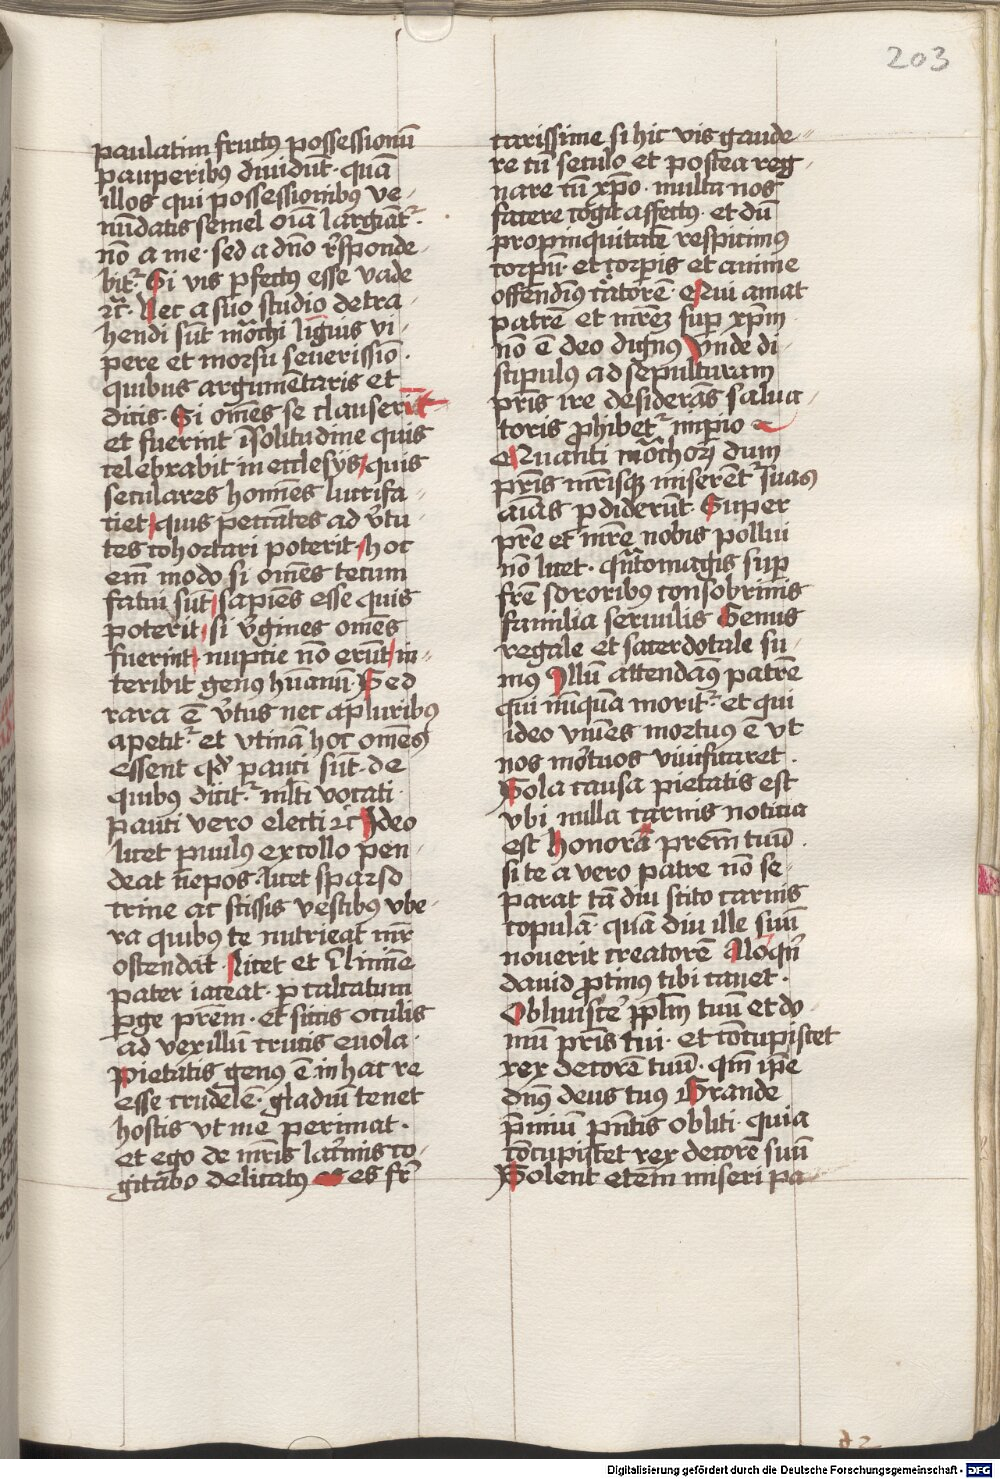 203
paulatim fructꝰ possessionū
pauperibꝰ diuidūt · quā
illos qui possessionibus ve⸗
nūdatis semel oīa largiāt᷑ ·
nō a me · sed a dn̄o rn̄sponde⸗
bit᷑ Si vis ꝑfectꝰ esse vade
⁊c̄ · Nec a suo studio detra⸗
hendi sūt mōchi liguis vi⸗
pere et morsu seuerissīo ·
quibus argumētaris et
dicis · Si om̄es se clauserīt
et fuerint ī solitudine quis
celebrabit in ecclesijs quis
seculares homīes lucrifa⸗
ciet quis peccātes ad v̓tu⸗
tes cohortari poterit · hoc
em̄ modo si om̄es tecum
fatui sūt sapiēs esse quis
poterit · si v̓gines om̄es
fuerint nuptie nō erūt in⸗
teribit genꝰ hūanū · Sed
rara ē v̓tus nec a pluribus
apetit᷑ et vtinā hoc om̄es
essent qd̓ pauci sūt · de
quibꝰ dicit᷑ ml̓ti vocati ·
pauci vero electi ⁊c̄ Ideo
licet ꝑuulꝰ ex collo pen⸗
deat nepos · licet sparso
crine ac scissis vestibꝰ vbe⸗
ra quibꝰ te nutrieat mr̄
ostendat · licet et ī limīe
pater iaceat · ꝑ calcatum
ꝑge prēm · et siccis oculis
ad vexillū crucis euola ·
Pietatis genꝰ ē in hac re
esse crudelē · gladiū tenet
hostis vt me perimat ·
et ego de mr̄is lac̓mis co⸗
gitabo delicatꝰ es fr̄
carissime si hic vis gaude⸗
re cū seculo et postea reg⸗
nare cū xp̄o · multa nos
facere cogit affectꝰ · et dū
propinquitatē respicimꝰ
corpū · et corpis et anime
offendimꝰ c̓atorē · Qui amat
patrē et mr̄eꝫ suꝑ xp̄m
nō ē deo dignꝰ Vnde di⸗
scipulꝰ ad sepulturam
pr̄is ire desiderās salua⸗
toris ꝓhibet᷑ imꝑio
Quanti mōchoꝝ dum
pr̄is mr̄isqꝫ miserent᷑ suas
aīas ꝑdiderūt · Super
pr̄e et mr̄e nobis pollui
nō licet · qn̄tomagis suꝑ
fr̄e sororibus consobrinis
familia seruilis Genus
regale et sacerdotale su⸗
mꝰ Illū attendamꝰ patrē
qui nūquā morit᷑ · et qui
ideo viuēs mortuꝰ ē vt
nos mo̓tuos viuificaret ·
Sola causa pietatis est
vbi nulla carnis noticia
est honora prēm tuū ·
si te a vero patre nō se⸗
parat tā diu scito carnis
copulā · quā diu ille suū
nouerit creatorē Alioqn̄
dauid ꝓtinꝰ tibi canet ·
Obliuisce̓ ppl̄m tuū et do⸗
mū pr̄is tui · et cōcupiscet
rex decorē tuū · qm̄ ip̄e
dn̄s deus tuꝰ Grande
p̄miū pn̄tis obliti · quia
cōcupiscet rex decorē suū
Solent etem̄ miseri pa⸗
Digitalisierung gefördert durch die Deutsche Forschungsgemeinschaft - DFG